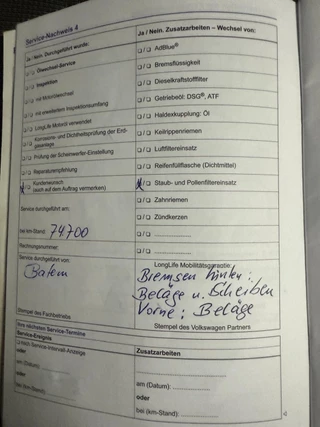 Service-Nachweis 4
Ja / Nein. Durchgeführt wurde:
❑ / ❑ Ölwechsel-Service
❑ / ❑ Inspektion
❑ / ❑ mit Motorölwechsel
❑ / ❑ mit erweitertem Inspektionsumfang
❑ / ❑ LongLife Motoröl verwendet
❑ / ❑ Korrosions- und Dichtheitsprüfung der Erdgasanlage
❑ / ❑ Prüfung der Scheinwerfer-Einstellung
❑ / ❑ Reparaturempfehlung
❑ / ❑ Kundenwunsch
(auch auf dem Auftrag vermerken)
Service durchgeführt am:
bei km-Stand: 74.700
Rechnungsnummer:
Service durchgeführt von:
Stempel des Fachbetriebs
Ja / Nein. Zusatzarbeiten – Wechsel von:
❑ / ❑ AdBlue®
❑ / ❑ Bremsflüssigkeit
❑ / ❑ Dieselkraftstofffilter
❑ / ❑ Getriebeöl: DSG®, ATF
❑ / ❑ Haldexkupplung: Öl
❑ / ❑ Keilrippenriemen
❑ / ❑ Luftfiltereinsatz
❑ / ❑ Reifenfüllflasche (Dichtmittel)
❑ / ❑ Staub- und Pollenfiltereinsatz
❑ / ❑ Zahnriemen
❑ / ❑ Zündkerzen
❑ / ❑
❑ / ❑
LongLife Mobilitätsgarantie:
Bremsen hinten:
Beläge u. Scheiben
Vorne: Beläge
Stempel des Volkswagen Partners
Ihre nächsten Service-Termine
Service-Ereignis
❑ nach Service-Intervall-Anzeige
oder
am (Datum):
oder
bei (km-Stand):
Zusatzarbeiten
am (Datum):
oder
bei (km-Stand):